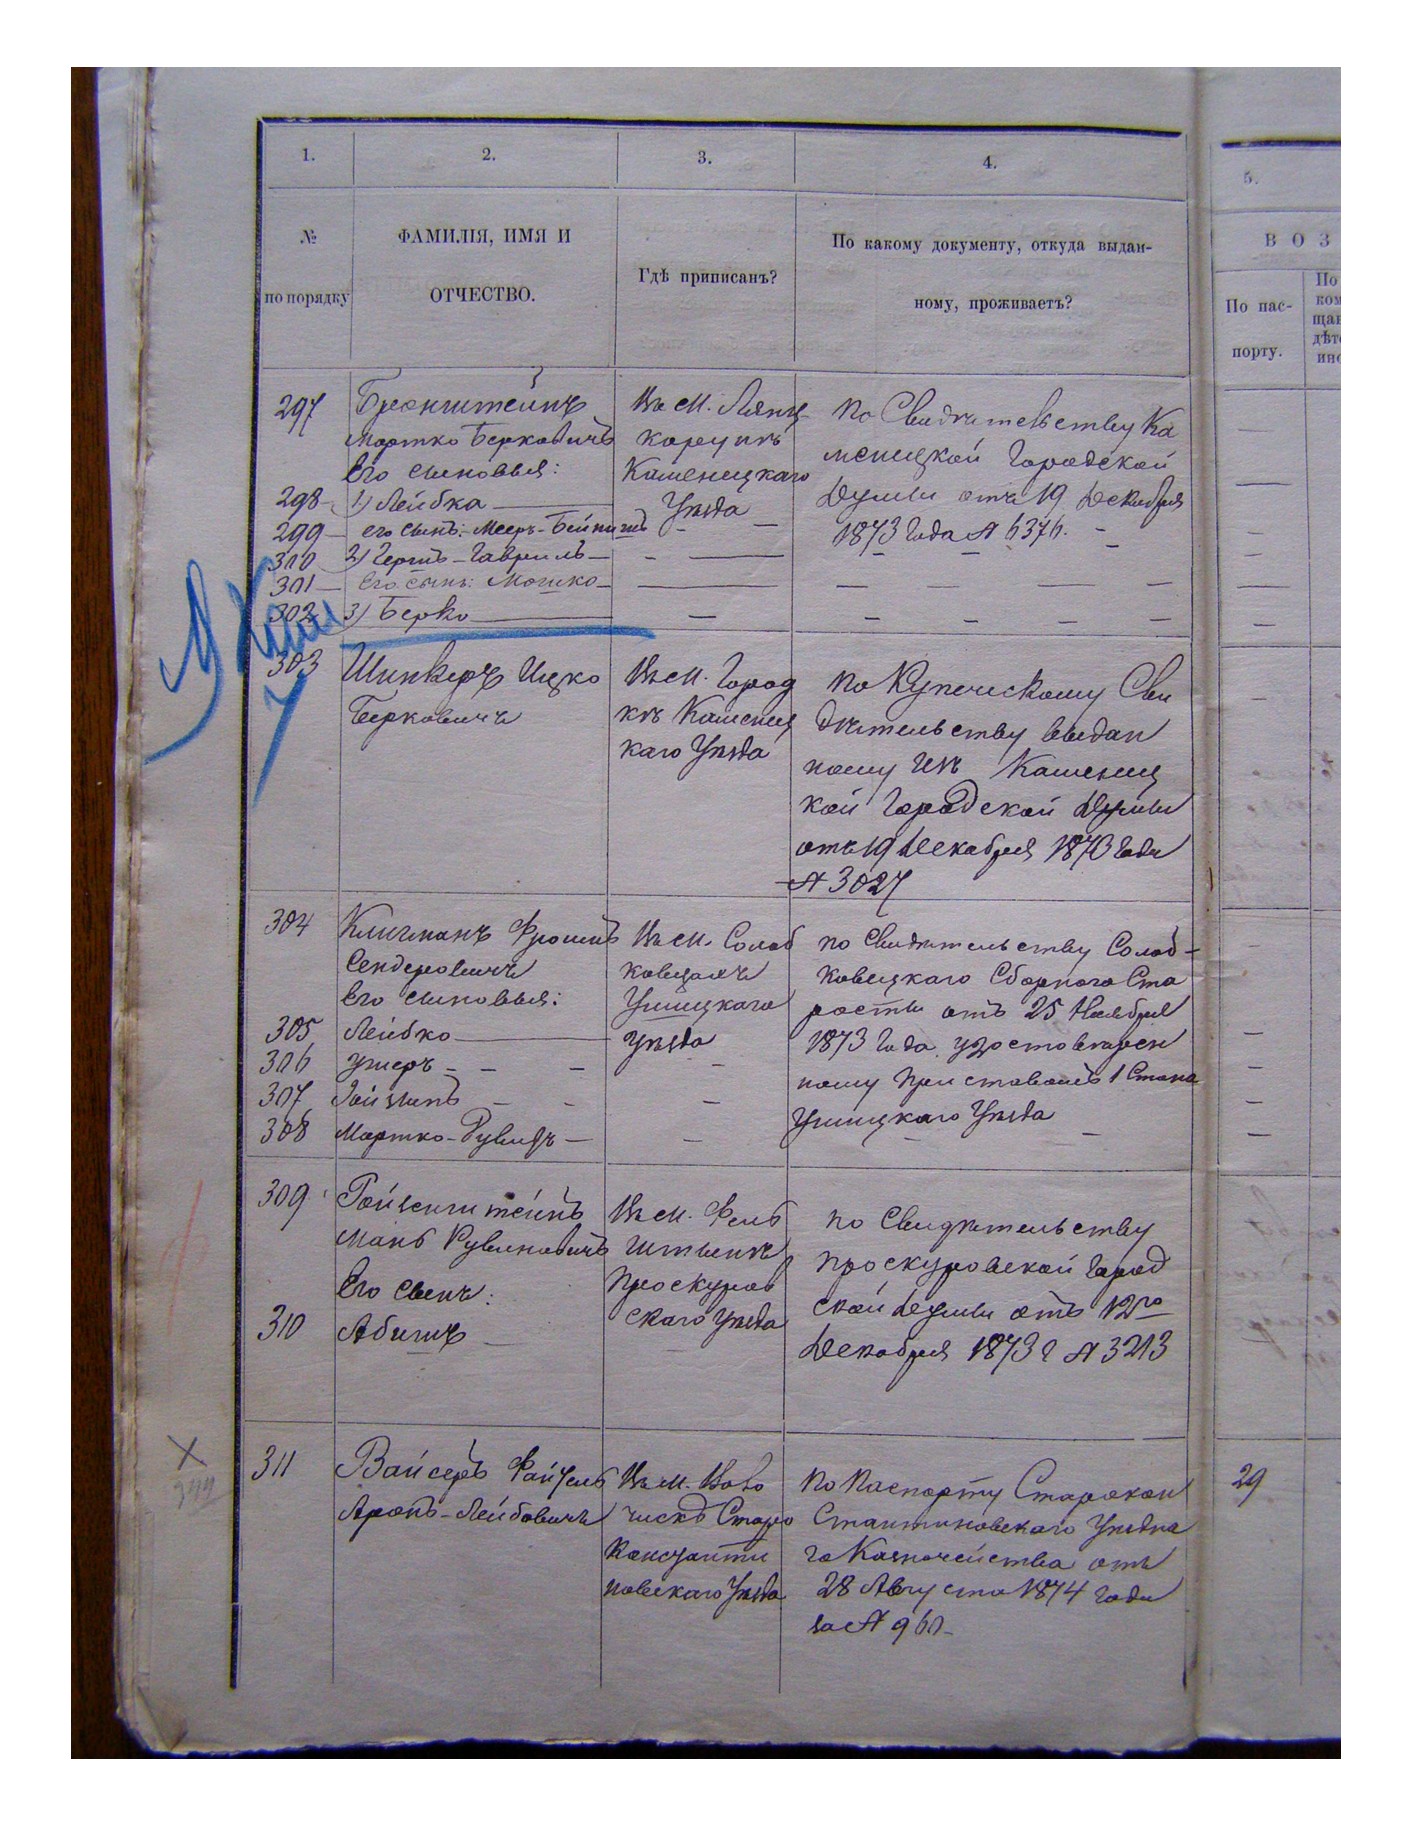 1.
2.
3.
4.
5.
№
по порядку
ФАМИЛІЯ, ИМЯ И
ОТЧЕСТВО.
Гдѣ приписанъ?
По какому документу, откуда выдан-
ному, проживаетъ?
ВОЗ
По пас-
порту.
По
ком
щан
дѣте
ино
297
Бронштейнъ
Мортко Берковичъ
Его сыновья:
298 1) Лейбка
299 его сынъ: Мееръ-
310 2) Гершъ-Гавриль
301 Его сынъ: Мошко
302 3) Берко
Въ м. Лянц
корунѣ
Каменецкаго
Уѣзда
По Свидѣтельству Ка
менецкой Городской
Думы отъ 19 Декабря
1873 Года № 6376.
303
Шинкеръ Ицко
Берковичъ
Въ м. Город
кѣ Каменец
каго Уѣзда
По Купеческому Сви
дѣтельству выдан
ному Изъ Каменец
кой Городской Думы
отъ 19 Декабря 1873 Года
№ 3027
304
Клигманъ Фроимъ
Сендеровичъ
Его сыновья:
305 Лейбко
306 Умеръ
307 Зайвель
308 Мортко-Рувинъ
Въ м. Солоб
ковцахъ
Ушицкаго
Уѣзда
по Свидѣтельству Солоб-
ковецкаго Сборнаго Ста
росты отъ 25 Ноября
1873 Года, удостовѣрен
ному Приставомъ 1 Стана
Ушицкаго Уѣзда
309
Гойзенштейнъ
Манъ Рувиновичъ
Его Сынъ:
310 Абишъ
Въ м. Фель
штынѣ
Проскуров
скаго Уѣзда
по Свидѣтельству
Проскуровской Город
ской Думы отъ 12го
Декабря 1873 г № 3213
311
Вайсеръ Файвель
Аронъ-Лейбовичъ
Въ м. Ново
Старо
Константи
новскаго Уѣзда
По Паспорту Старокон
стантиновскаго Уѣздна
го Казначейства отъ
28 Августа 1874 Года
за № 960
29